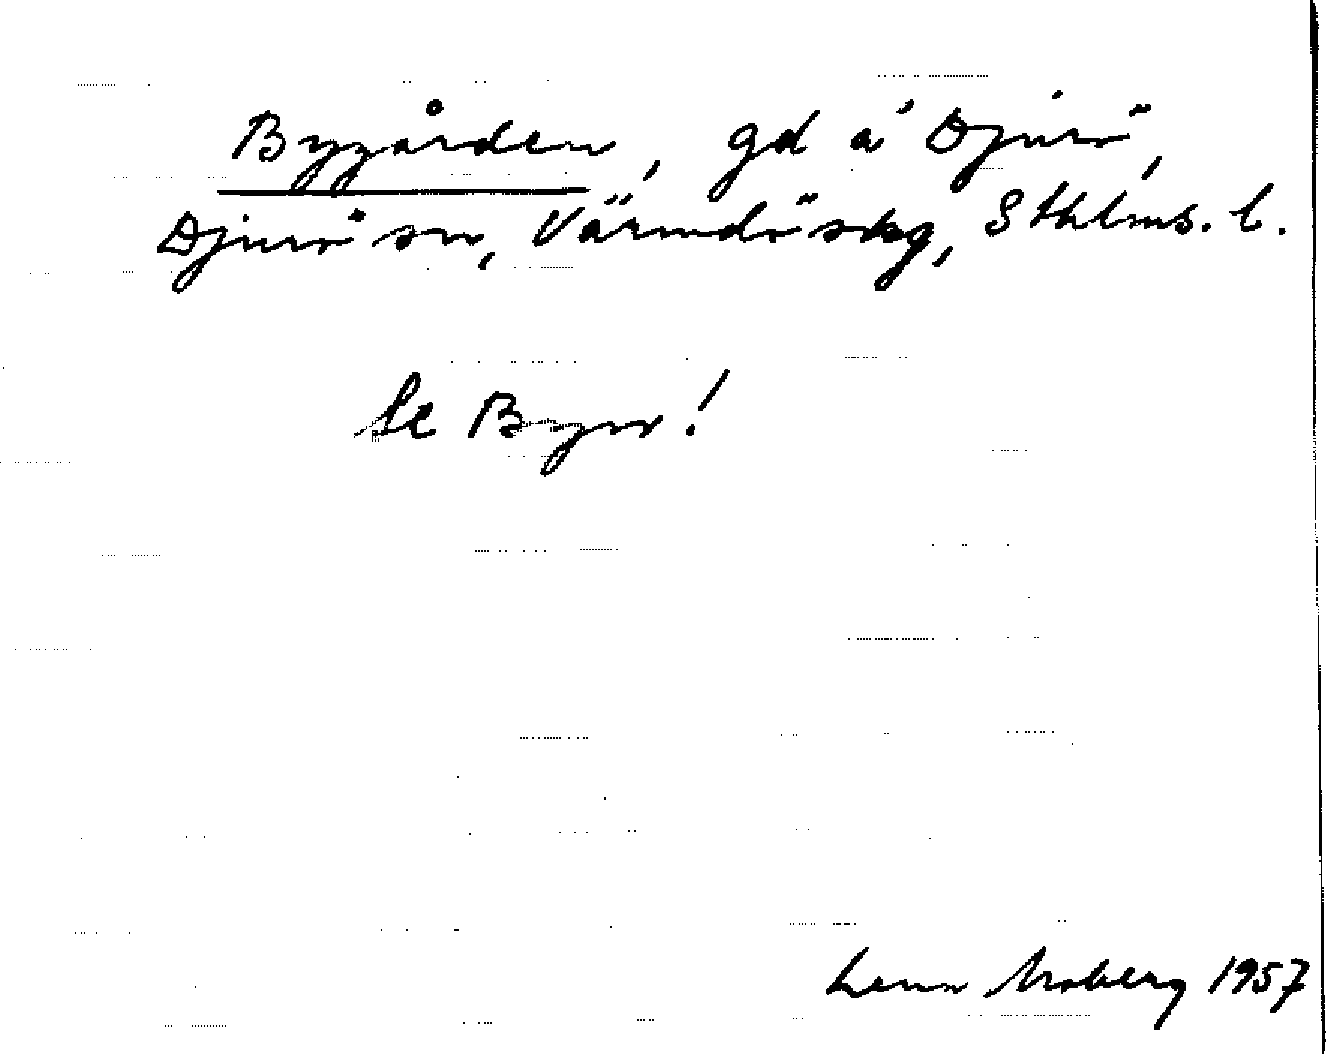 Bygården, gd å Djurö,
Djurö sn, Värmdö skg, Sthlms. l.
Se Byn!
Lena Moberg 1957